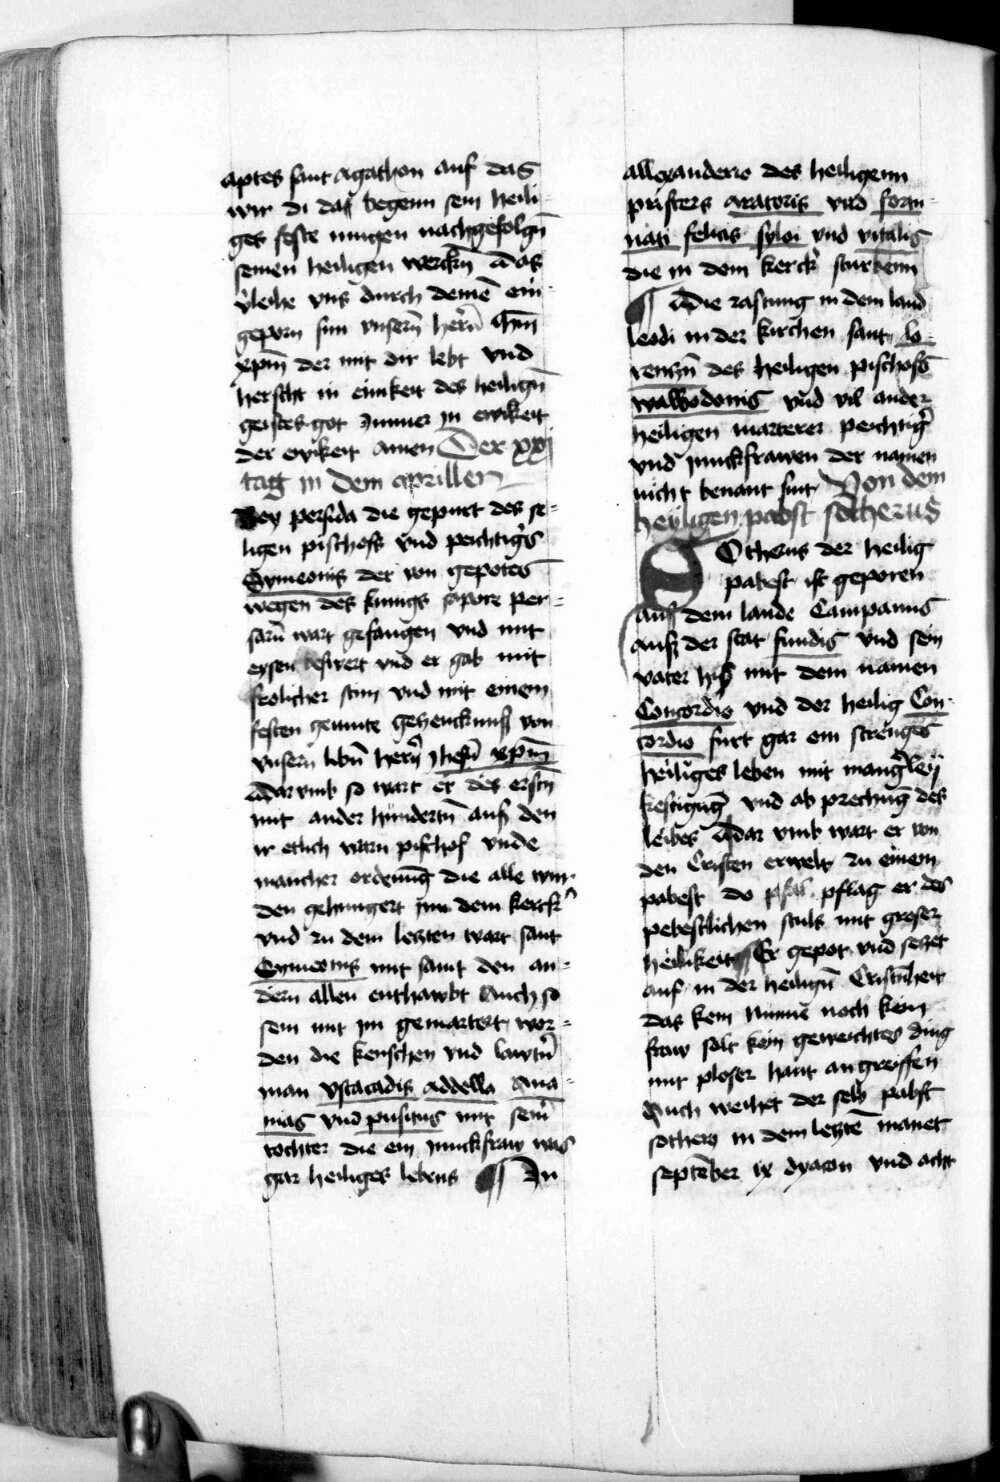 aptes sant agathon auf das
wir di das begenn sein heili-
ges feste mugen nachgefolgn̄
seinen heiligen werckn̄ das
v̓leihe vns durch deinē ein-
geporn sun vnsern̄ hern̄ ihm̄
xpm̄ der mit dir lebt vnd
herscht in einikeit des heilign̄
geistes got ymmer in ewikeit
der ewikeit amen Der xxj
tag in dem aprillen
Bey persida die gepurt des se-
ligen pischofs vnd peichtigs̓
Symeonis der von gepotes
wegen des kunigs sapore per-
sarū wart gefangen vnd mit
eysen beswert vnd er gab mit
frolicher stim vnd mit einem
festen gemute geheucknuß von
vnsern libn̄ hern̄ jhesū xpm̄
darvmb so wart er des erstn̄
mit ander hundertn̄ auß den
ir etlich warn pischof vnde
mancher ordenūg die alle wur-
den gehungert im dem kerck̓
vnd zu dem letzten wart sant
Symeonis mit samt den an-
dern allen enthawbt Auch so
sein mit im gemartert wor-
den die keuschen vnd lawtn̄
man vstacadis addella Ana-
nias vnd pusitus mit sein̓
tochter die ein junckfraw was
gar heiliges lebens ¶ In
allexandere des heiligenn
pristers aratoris vnd fortu-
nati felicis syloi vnd vitalis
die in dem kerck̓ sturbenn
¶ Die rastung in dem land
leodi in der kirchen sant lo-
renczn̄ des heiligen pischofs
walbodonis vnd vil ander
heiligen marterer peichtig̓
vnd junckfrawen der namen
nicht benant sint Von dem
heyligen pabst sotherus
SOtherus der heilig
pabest ist geporen
auß dem lande Campanus
auß der stat fundis vnd sein
vater hiß mit dem namen
Concordis vnd der heilig Con-
cordis furt gar ein strenges
heiliges leben mit mang̓leij
kestigūg vnd ab prechūg des
leibes Dar vmb wart er von
den Cristen erwelt zu einem
pabest do pflag er des
pebestlichen stuls mit groser
heilikeit ¶ Er gepot vnd setzet
auf in der heilign̄ Cristenheit
das kein nunne noch kein
fraw solt kein geweichtes ding
mit ploser hant angreiffen
Auch weihet der selb pabst
sothers in dem letztē manet
septēber ix dyacon vnd acht